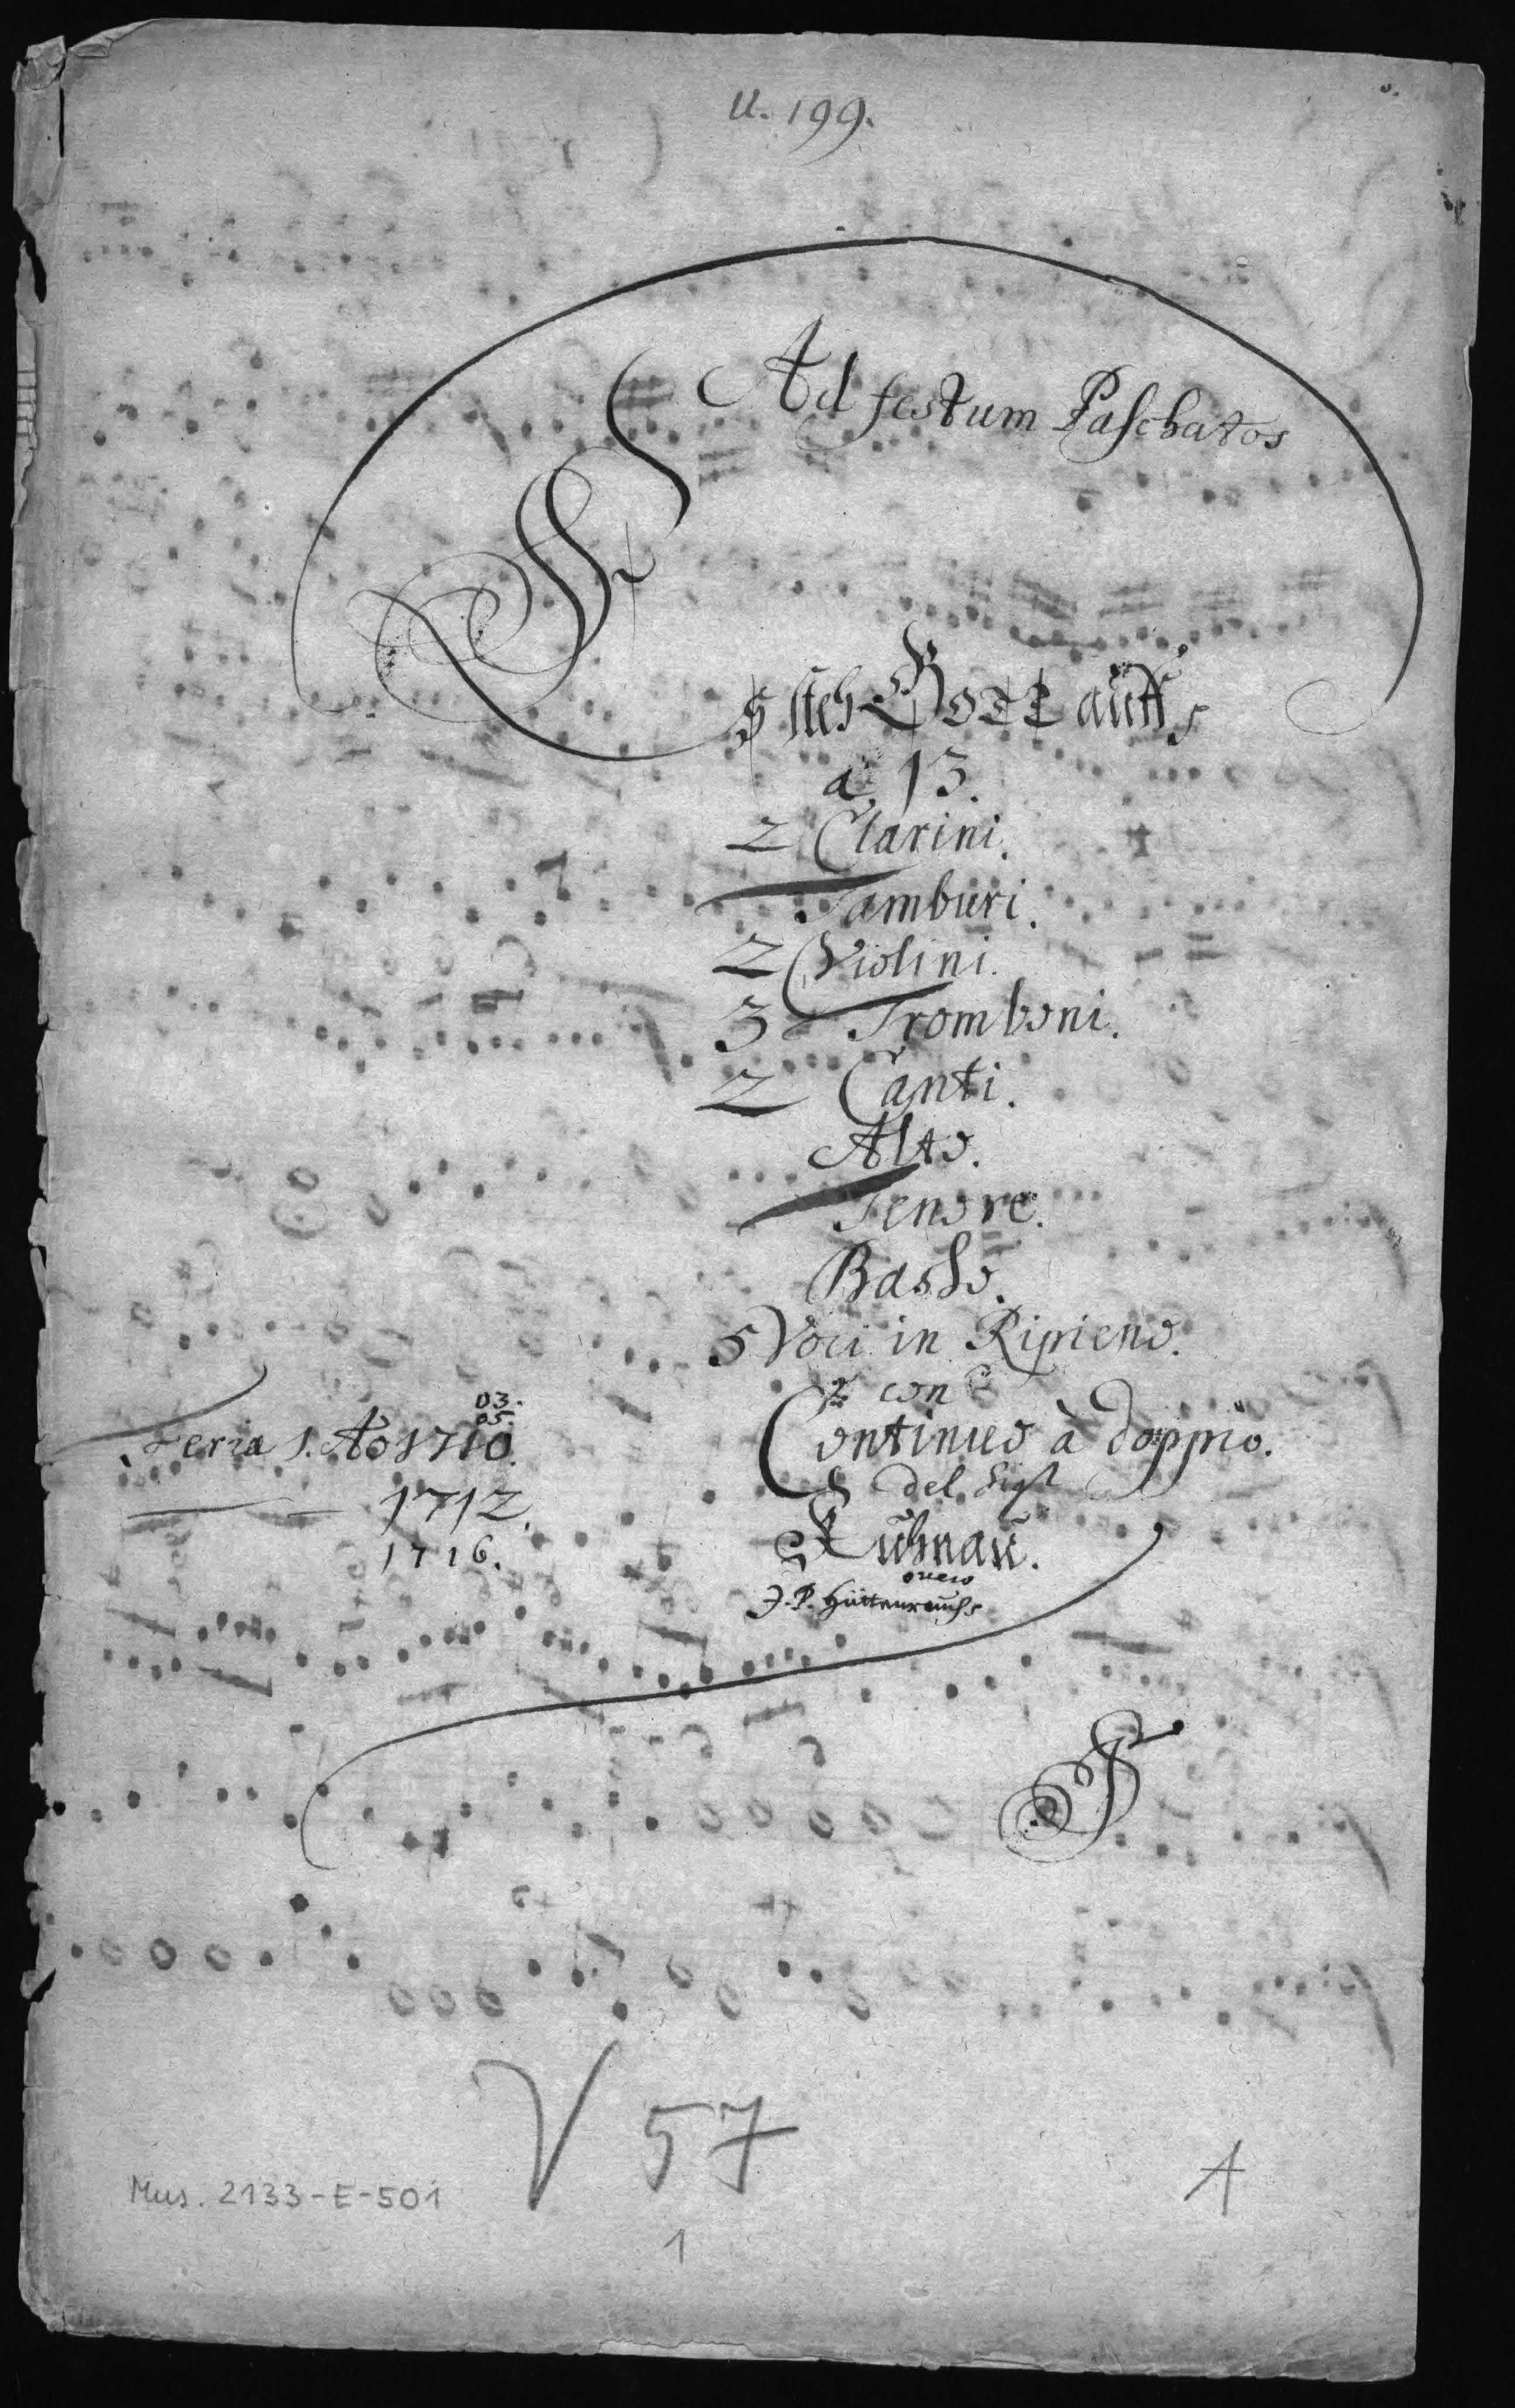 U. 199.
Ad festum Paschatos
Es steh GOTT auff
a 13.
2 Clarini.
Tamburi.
2 Violini.
3 Tromboni.
2 Canti.
Alto.
Tenore.
Basso.
5 Voci in Ripieno.
con
Continuo à doppio.
del Sigr
Kuhnau.
overo
J. P. Hüttenrauch
03.
05.
Feria 1. Ao 1710.
1712.
1716.
V 57
Mus. 2133-E-501
1
A